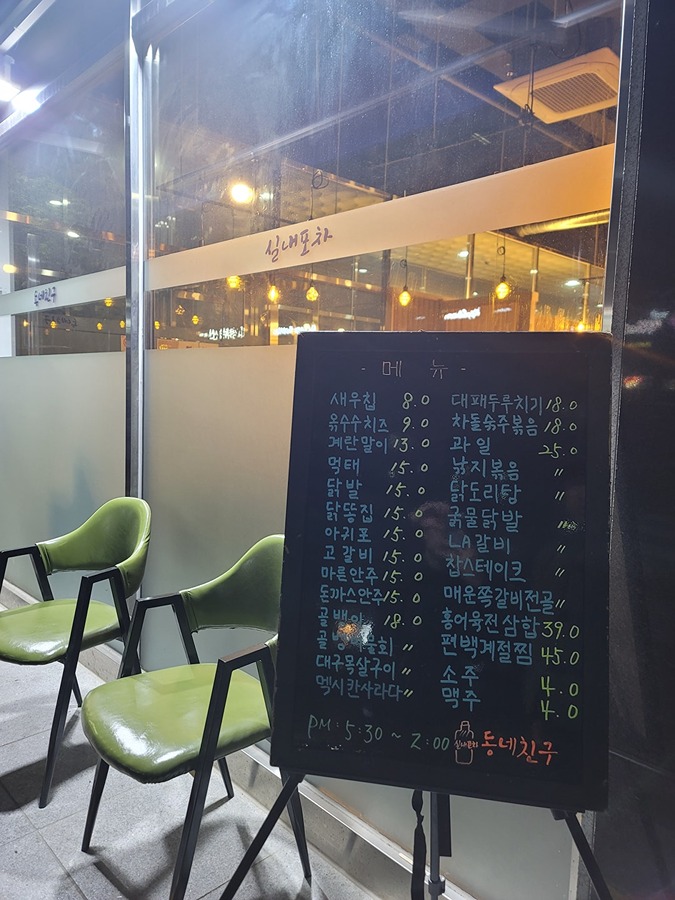 실내포차
동네친구
- 메 뉴 -
새우칩 8.0
옥수수치즈 9.0
계란말이 13.0
먹태 15.0
닭발 15.0
닭똥집 15.0
아귀포 15.0
고갈비 15.0
마른안주 15.0
돈까스안주 15.0
18.0
〃
대구목살구이 〃
멕시칸사라다 〃
대패두루치기 18.0
차돌숙주볶음 18.0
과일 25.0
낚지볶음 〃
닭도리탕 〃
국물닭발 〃
LA갈비 〃
찹스테이크 〃
매운쪽갈비전골 〃
홍어육전삼합 39.0
편백계절찜 45.0
소주 4.0
맥주 4.0
PM: 5:30 ~ 2:00
동네친구